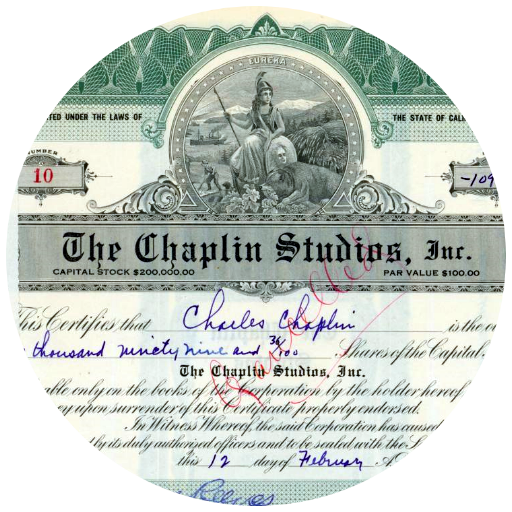 EUREKA
TED UNDER THE LAWS OF THE STATE OF CAL
NUMBER
10 -109
The Chaplin Studios, Inc.
CAPITAL STOCK $200,000.00 PAR VALUE $100.00
Cancelled
This Certifies that Charles Chaplin is the
thousand ninety nine and 36/100 Shares of the Capital
The Chaplin Studios, Inc.
able only on the books of the Corporation by the holder hereof
upon surrender of this Certificate properly endorsed.
In Witness Whereof, the said Corporation has caused
by its duly authorised officers and to be sealed with the
this 12 day of February A.
Reeves